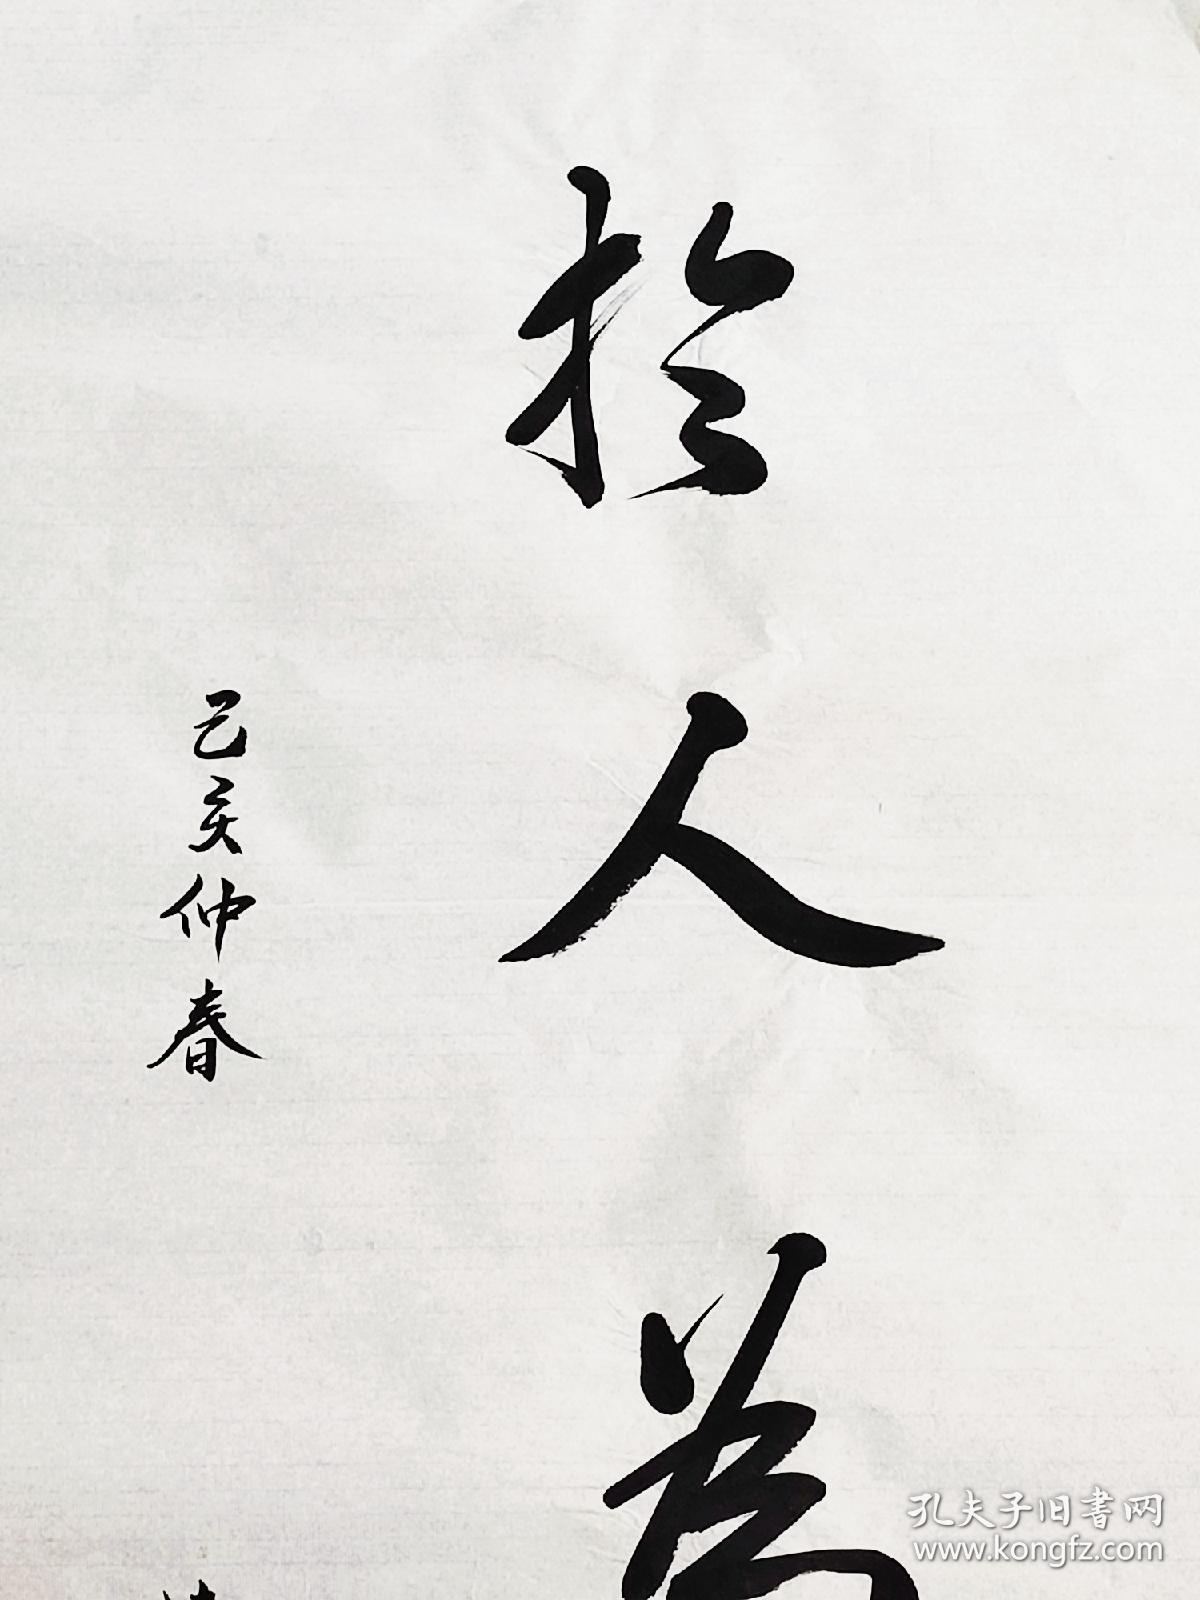 於人為
己亥仲春
孔夫子旧書网
www.kongfz.com